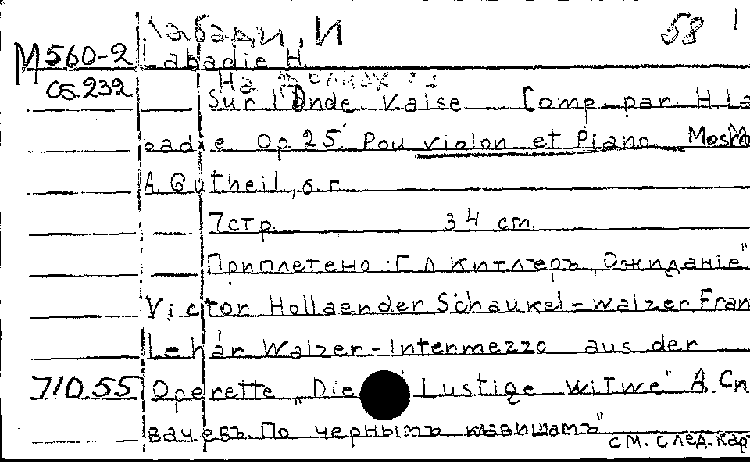 Лабади, И 58 1
М560-2 Labadie H.
об.232 На волнах
Sur l'Onde Valse Comp. par H La
badie Op 25. Pou violon et Piano Mosk
A Gutheil, s. г.
7стр. 34 cm
Приплетено: Г Л Китлеръ „Ожиданіе"
Victor Hollaender Schaukel-walzer Fran
Lehár Walzer-Intermezzo aus der
710.55 Operette „Die Lustige Witwe" А. Сп
вачевъ По чернымъ клавишамъ"
см. след. кар